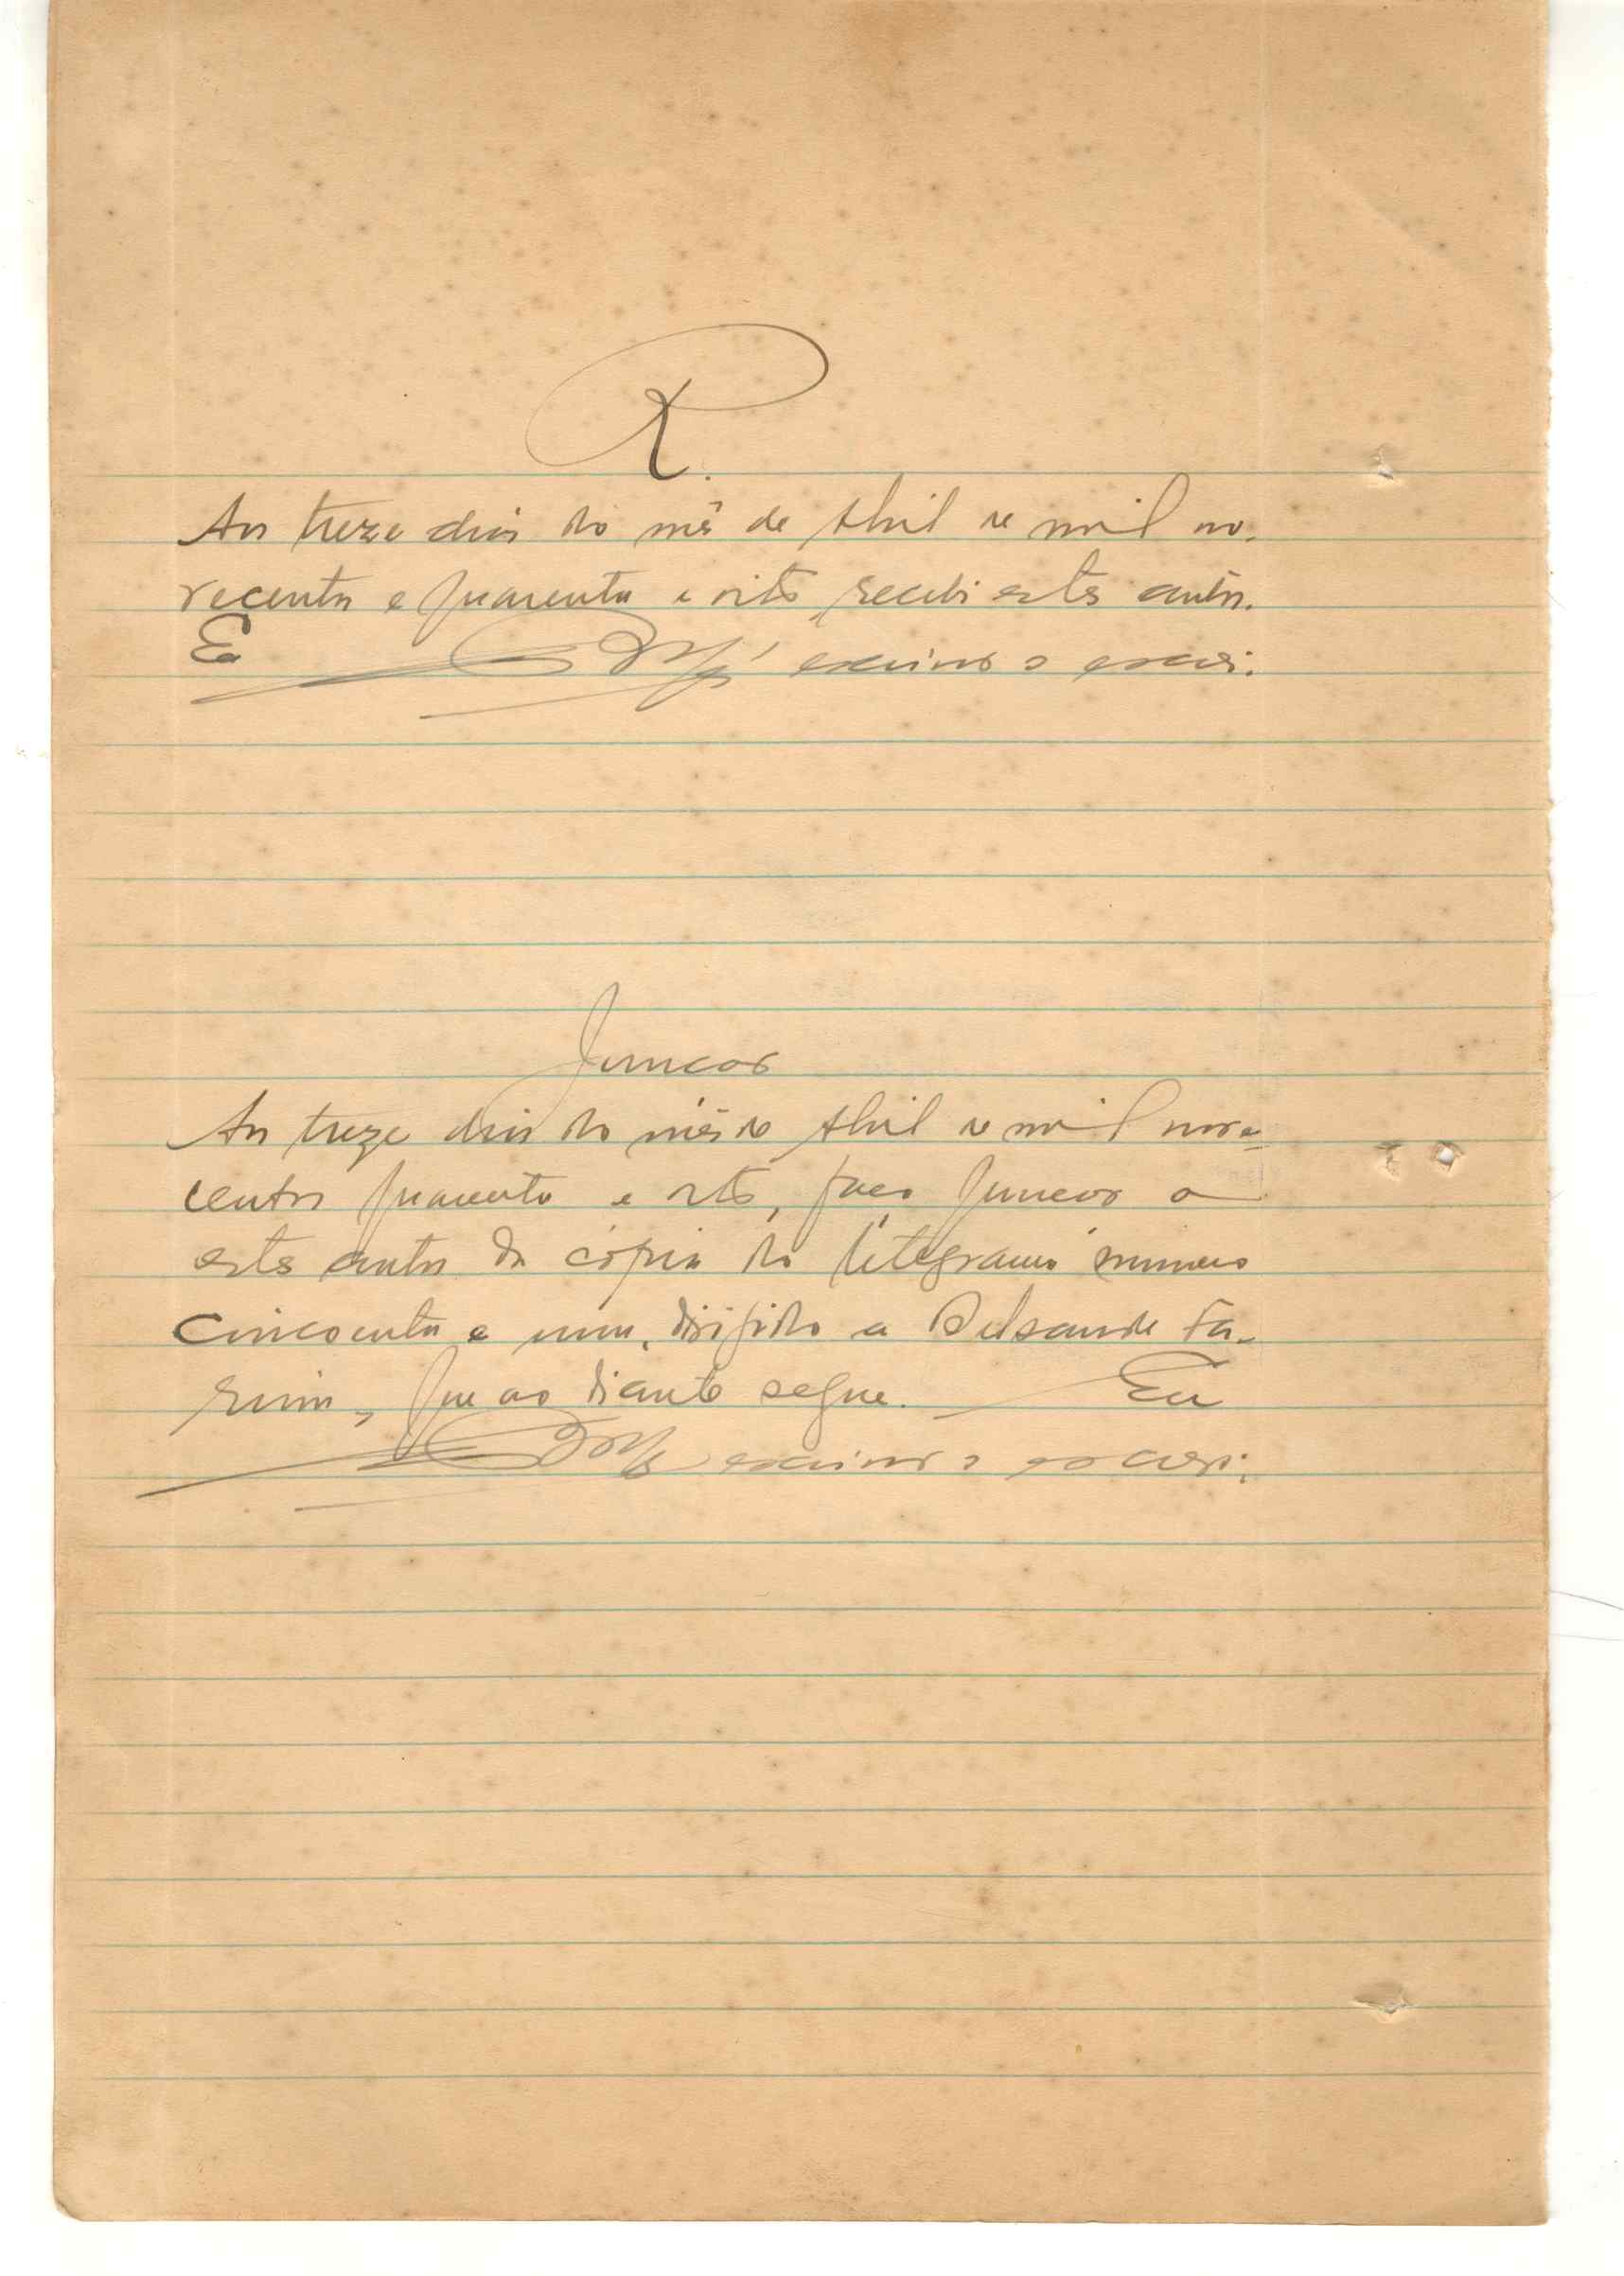 R.
Aos treze dias do mês de Abril de mil no-
vecentos e quarenta e oito, recebi estes autos.
Eu escrivão o escrevi.
Juncão
Aos treze dias do mês de Abril de mil nove-
centos quarenta e oito, faço juncão a
estes autos da cópia do telegrama número
cincoenta e um, dirigido a Belsande Fa-
que ao diante segue. Eu
escrivão o escrevi.